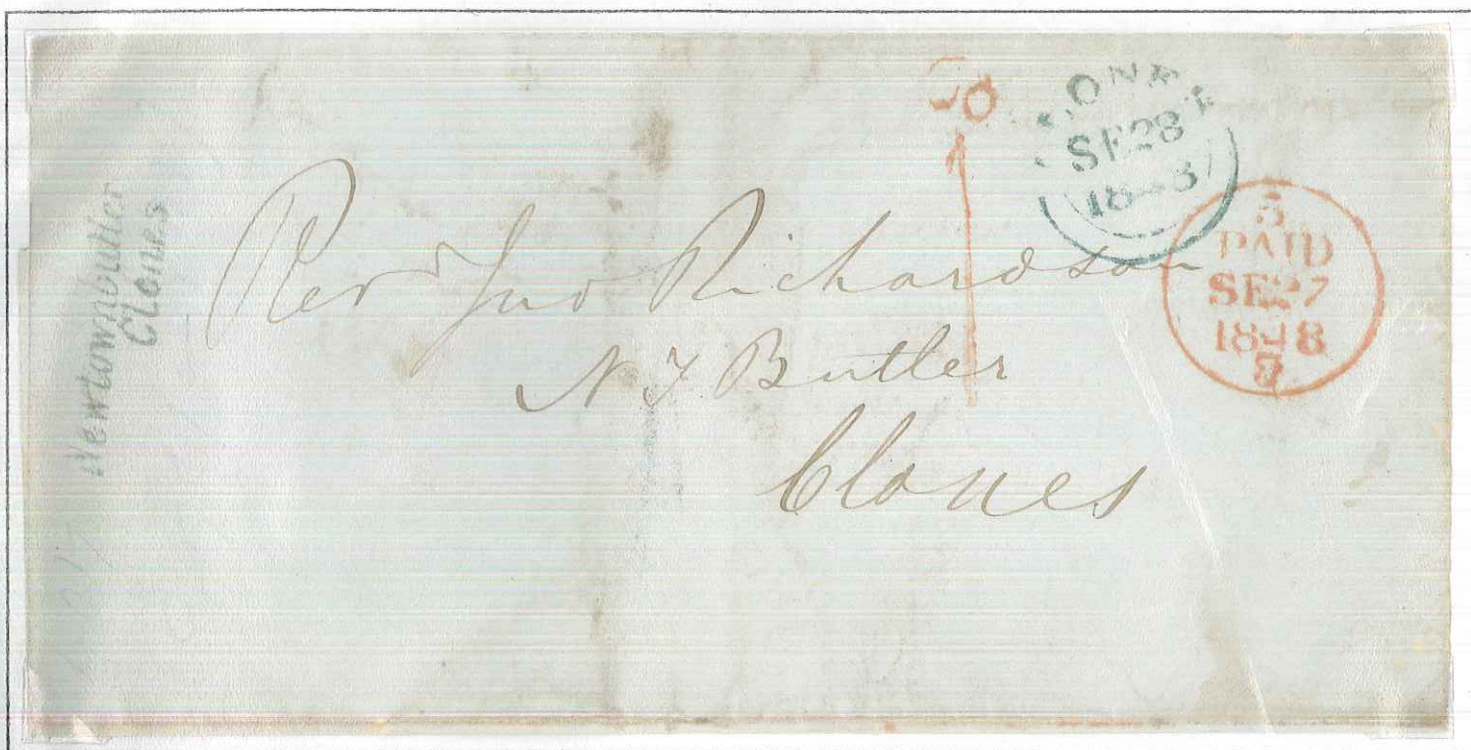 Newtownbutler
Clones
Revd Jno Richardson
N T Butler
Clones
CLONES
SE 28
1848
PAID
SE 27
1848